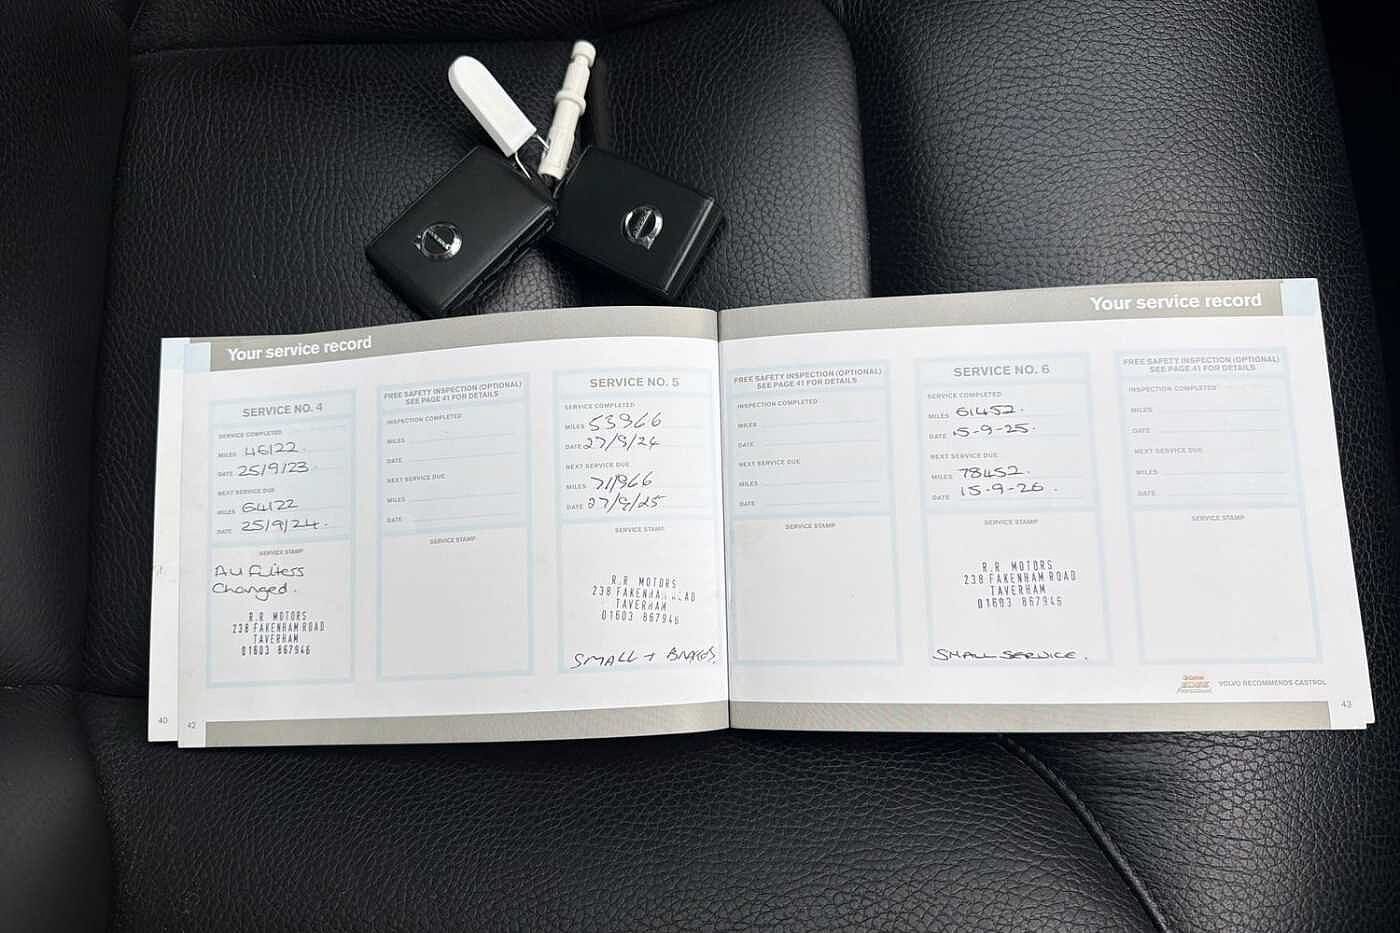 Your service record
SERVICE NO. 4
SERVICE COMPLETED
MILES 46122.
DATE 25/9/23.
NEXT SERVICE DUE
MILES 64122
DATE 25/9/24.
SERVICE STAMP
All Filters
Changed.
R.R MOTORS
238 FAKENHAM ROAD
TAVERHAM
01603 867946
40
42
FREE SAFETY INSPECTION (OPTIONAL)
SEE PAGE 41 FOR DETAILS
INSPECTION COMPLETED
MILES
DATE
NEXT SERVICE DUE
MILES
DATE
SERVICE STAMP
SERVICE NO. 5
SERVICE COMPLETED
MILES 53966
DATE 27/9/24
NEXT SERVICE DUE
MILES 71966
DATE 27/9/25
SERVICE STAMP
R.R MOTORS
238 FAKENHAM ROAD
TAVERHAM
01603 867946
SMALL + BRAKES.
Your service record
FREE SAFETY INSPECTION (OPTIONAL)
SEE PAGE 41 FOR DETAILS
INSPECTION COMPLETED
MILES
DATE
NEXT SERVICE DUE
MILES
DATE
SERVICE STAMP
SERVICE NO. 6
SERVICE COMPLETED
MILES 61452.
DATE 15-9-25.
NEXT SERVICE DUE
MILES 78452.
DATE 15-9-26.
SERVICE STAMP
R.R MOTORS
238 FAKENHAM ROAD
TAVERHAM
01603 867946
SMALL SERVICE.
FREE SAFETY INSPECTION (OPTIONAL)
SEE PAGE 41 FOR DETAILS
INSPECTION COMPLETED
MILES
DATE
NEXT SERVICE DUE
MILES
DATE
SERVICE STAMP
EDGE
VOLVO RECOMMENDS CASTROL
43